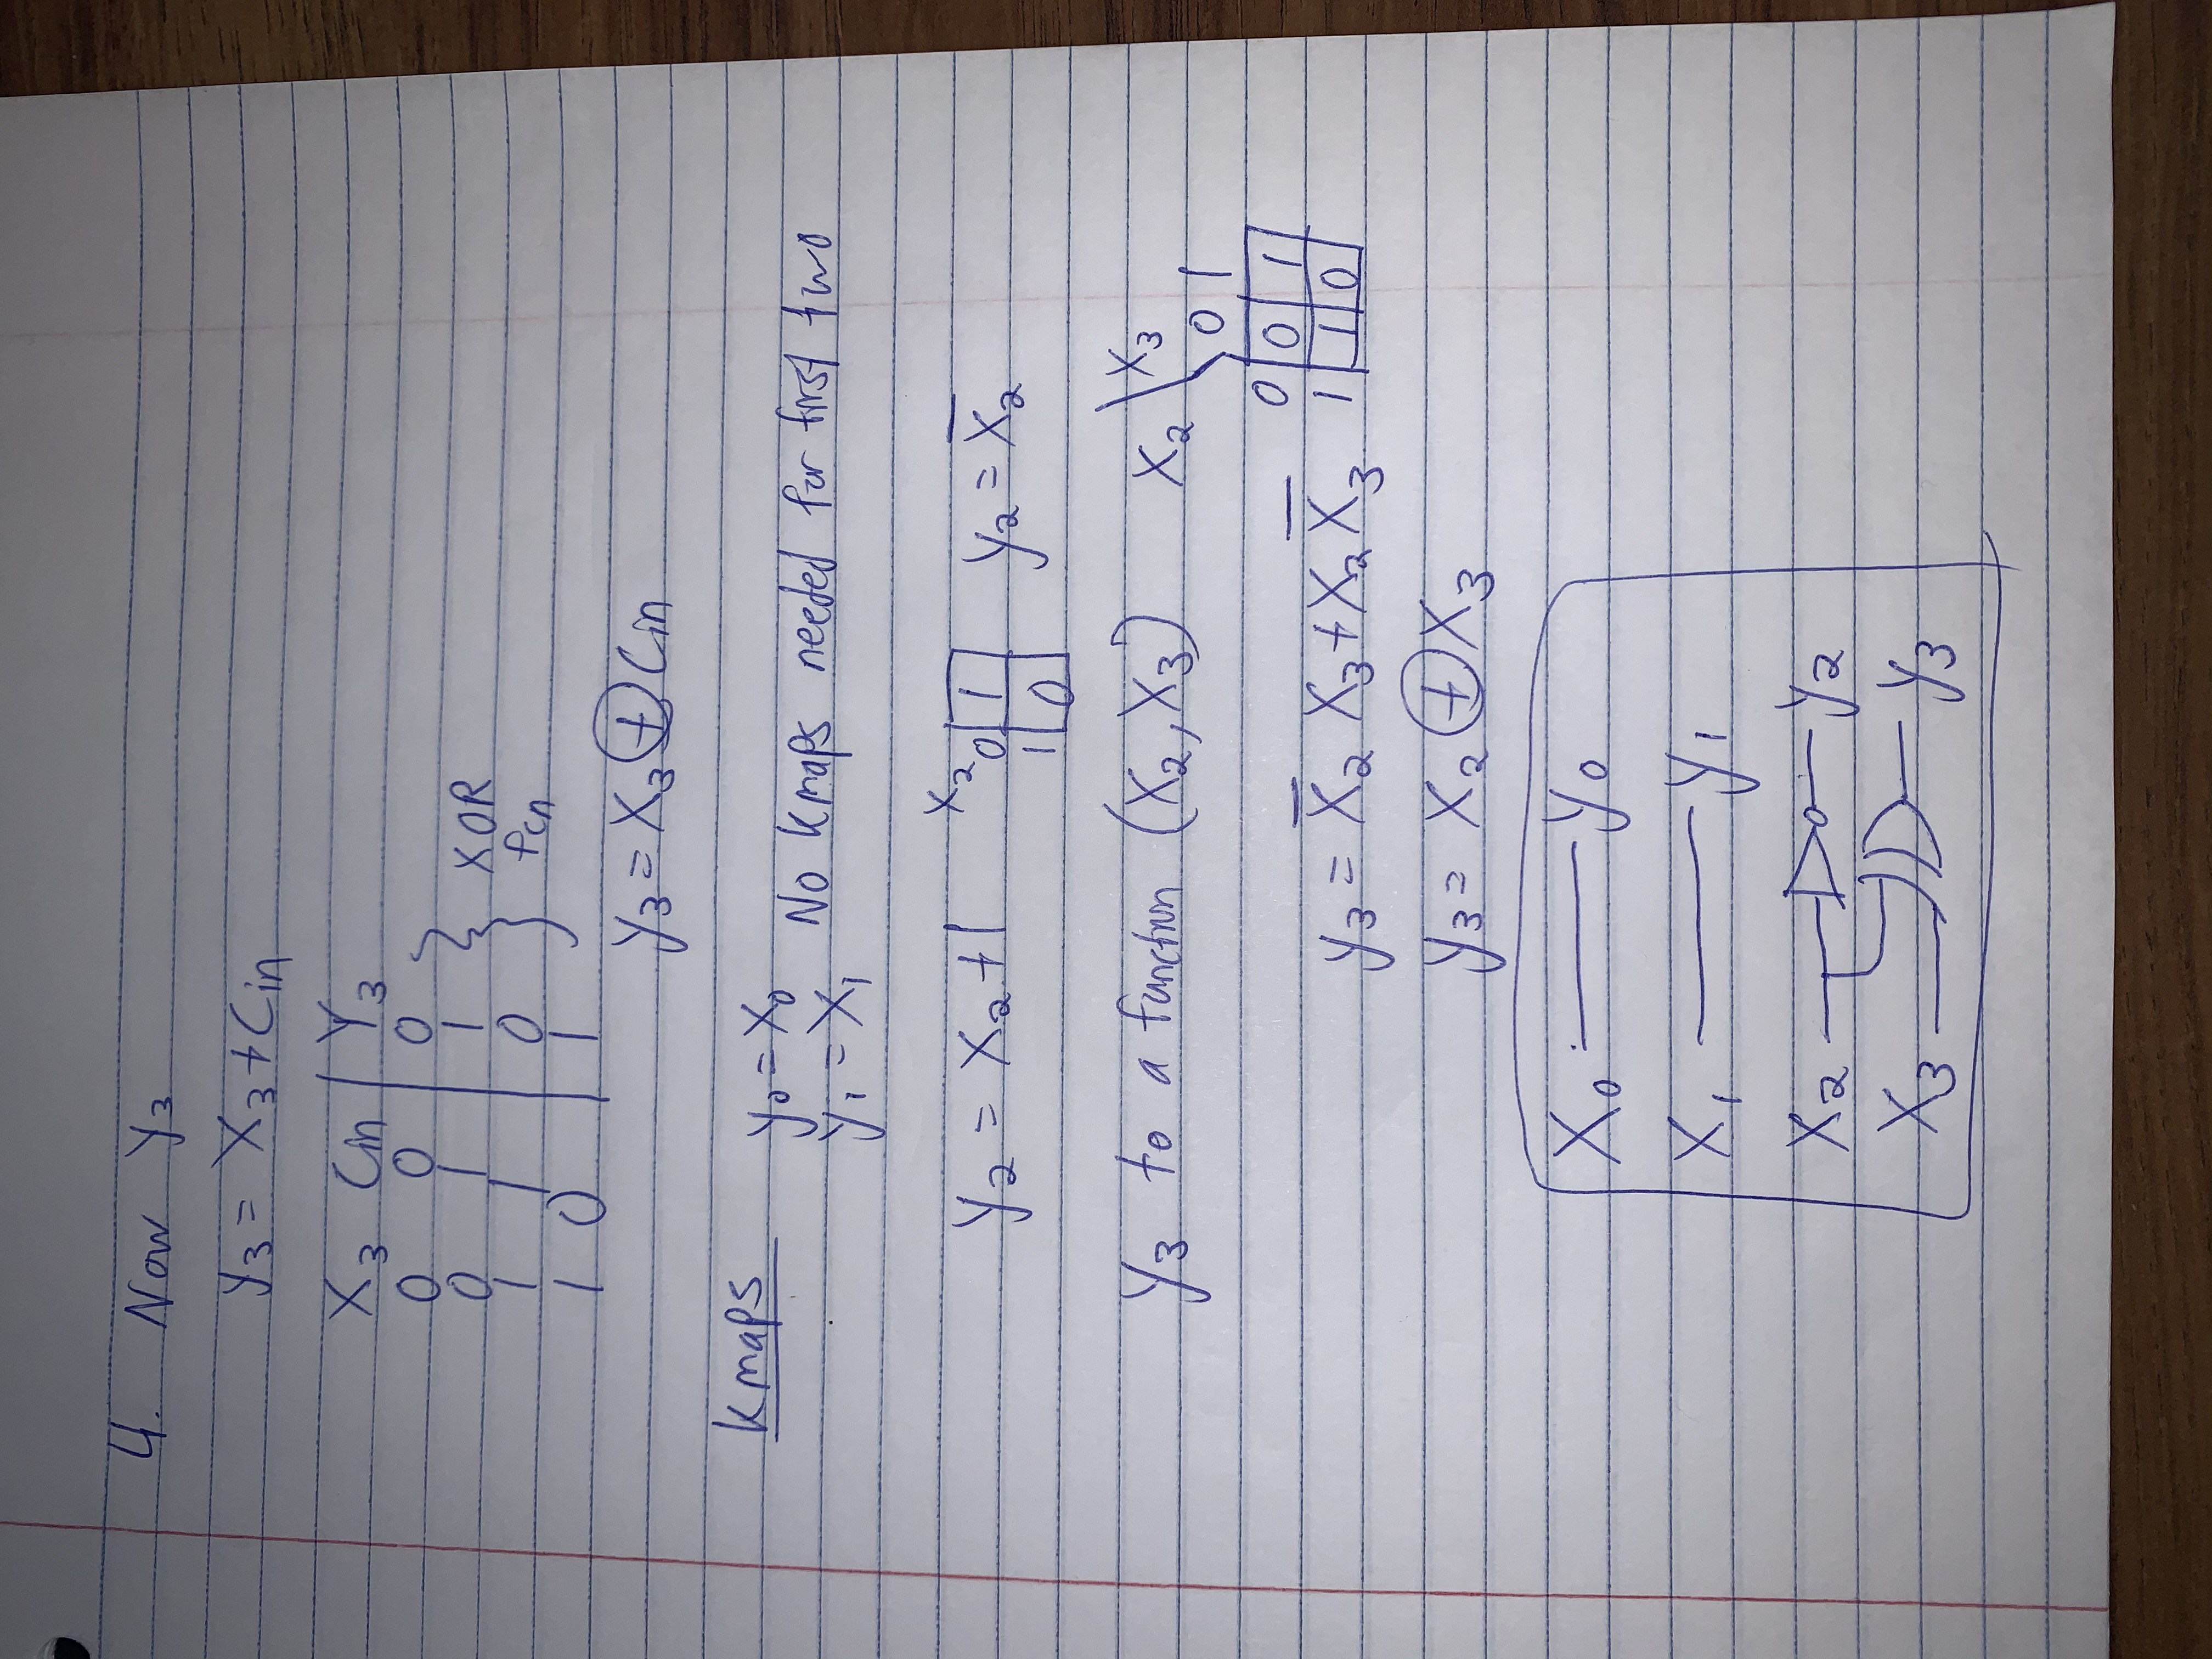 4. Now y₃
y₃ = X₃ + Cin
X₃ Cin | Y₃
0 0 | 0
0 1 | 1 XOR
1 1 | 0 fcn
1 0 | 1
y₃ = X₃ ⊕ Cin
Kmaps
y₀ = X₀
y₁ = X₁ No Kmaps needed for first two
y₂ = X₂ + 1 X₂ 0 1 y₂ = X̅₂
1 0
y₃ to a function (X₂, X₃) X₂ \ X₃
0 1
0 0 1
y₃ = X̅₂ X₃ + X₂ X̅₃ 1 1 0
y₃ = X₂ ⊕ X₃
X₀ y₀
X₁ y₁
X₂ y₂
X₃ y₃